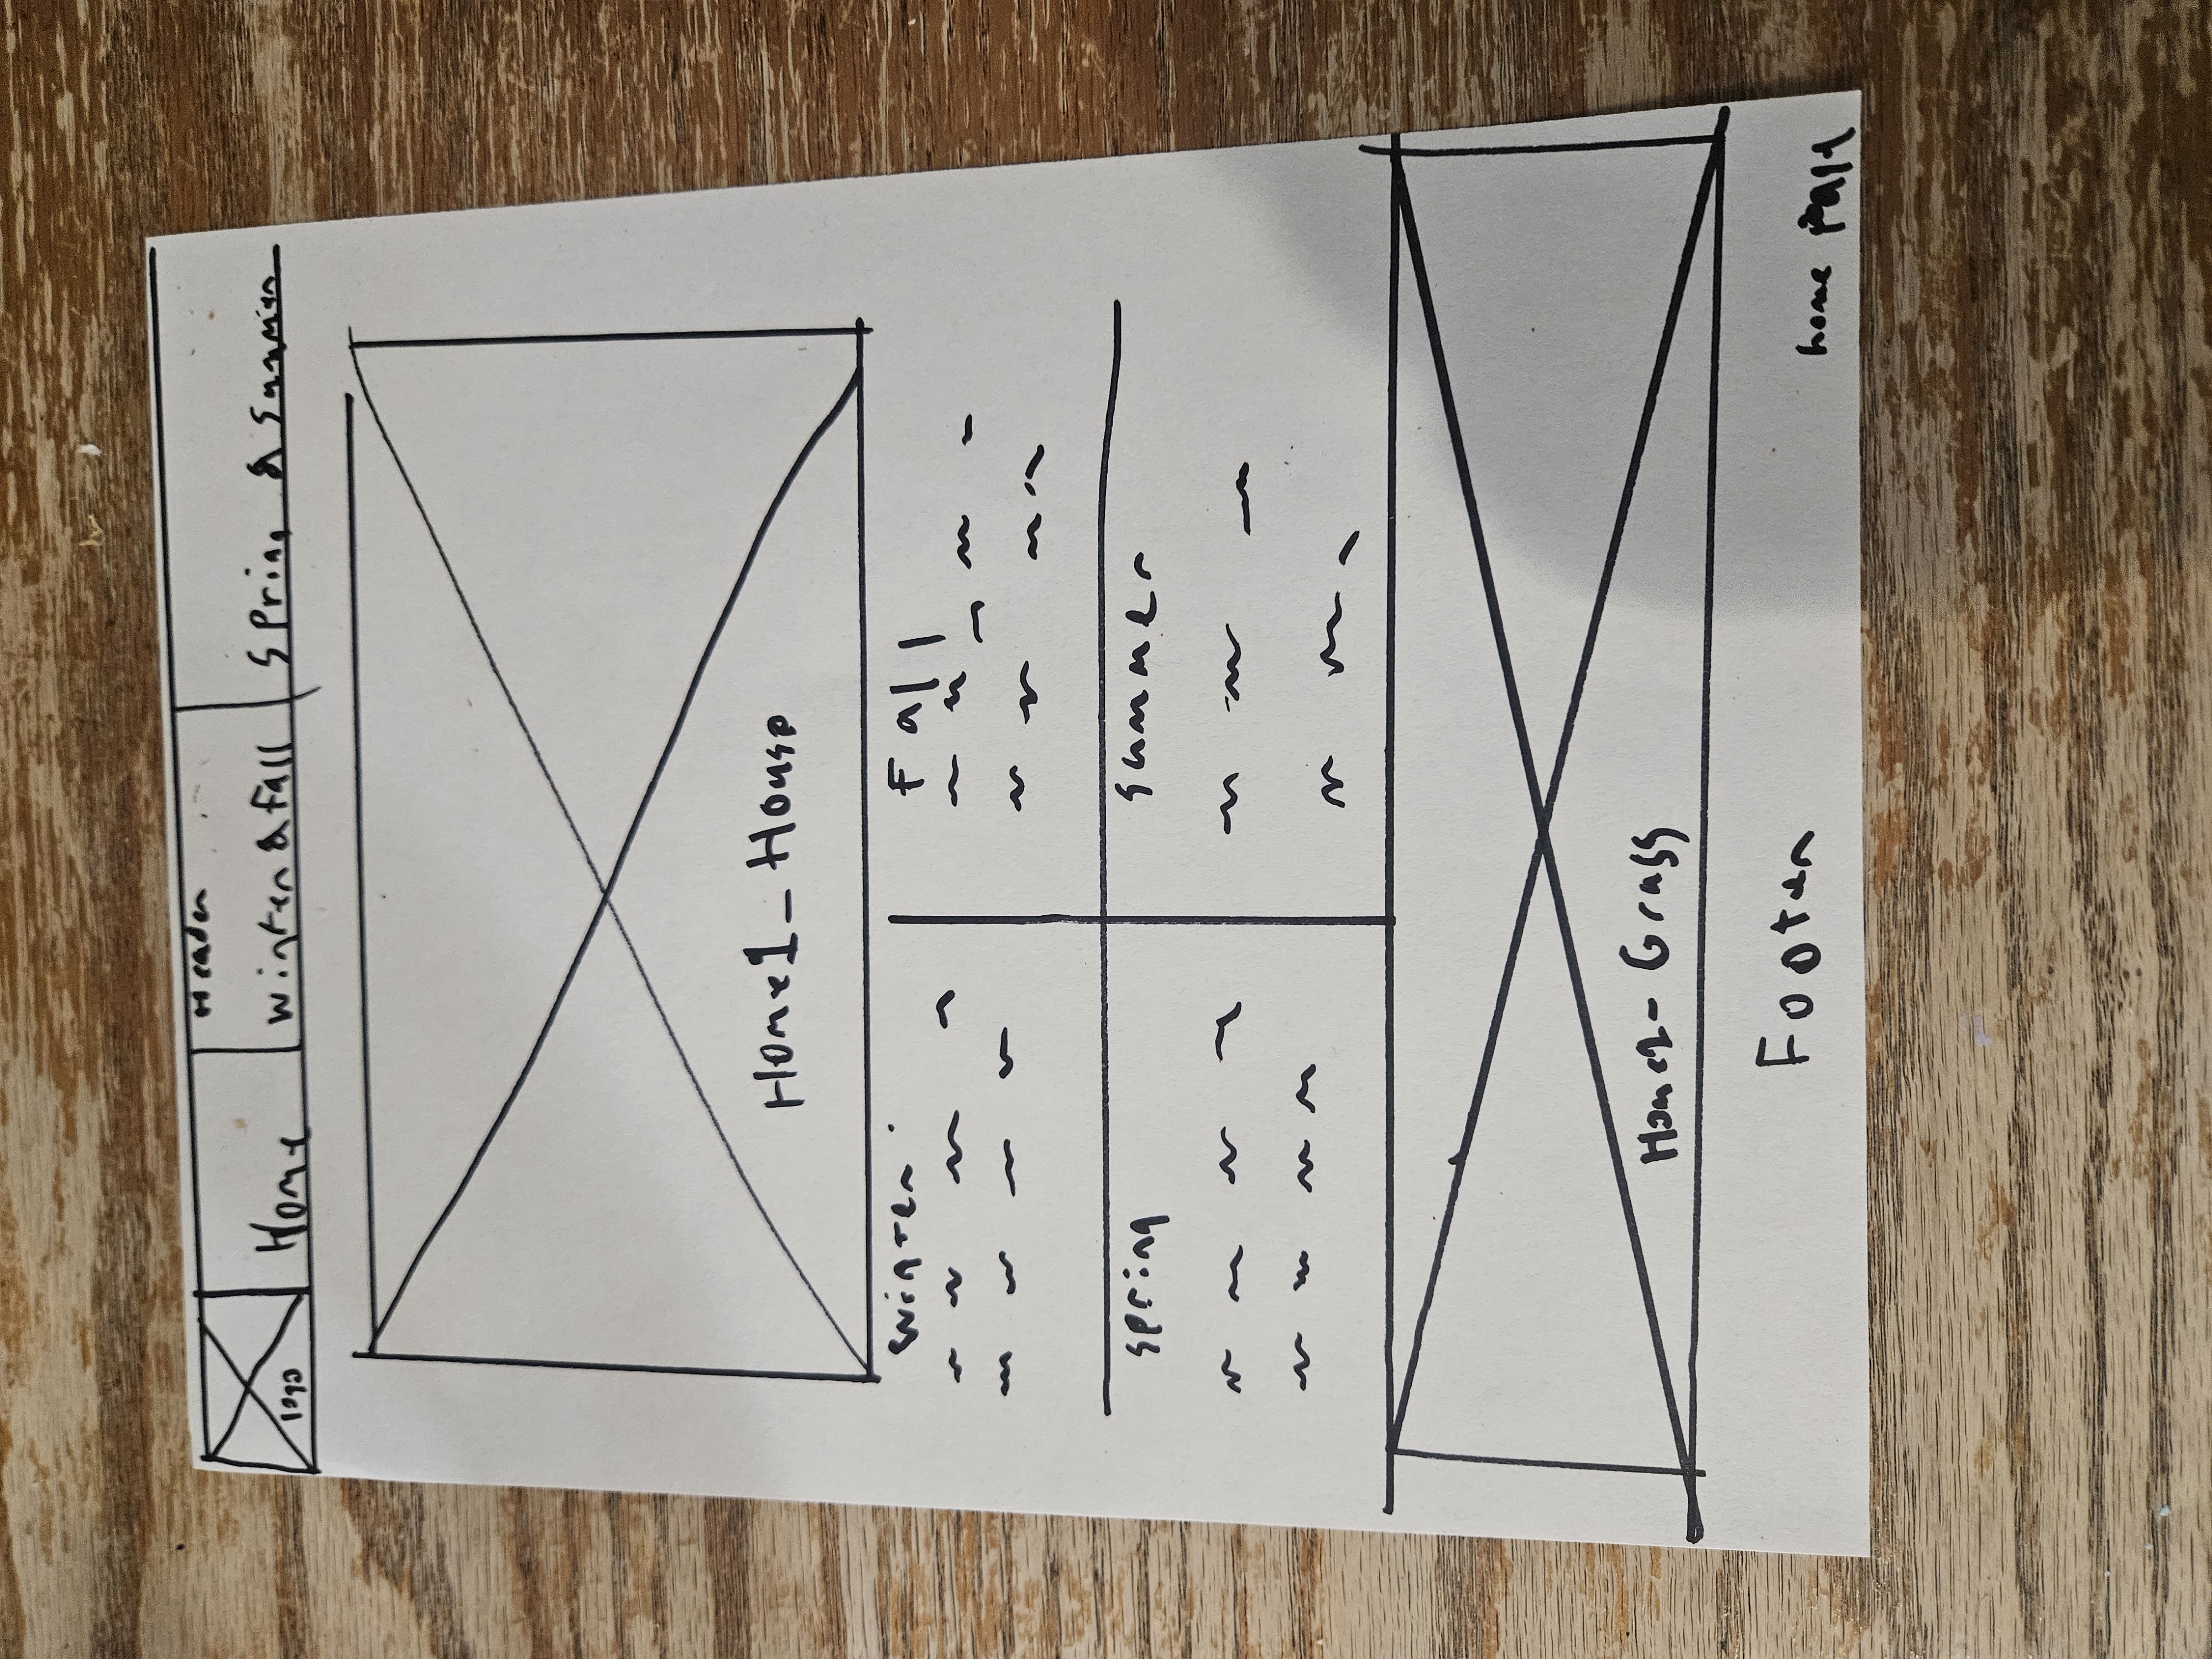 Header
logo
Home
Winter & Fall
Spring & Summer
Home1_House
Winter
Fall
Spring
Summer
Home1-Grass
Footer
home Page